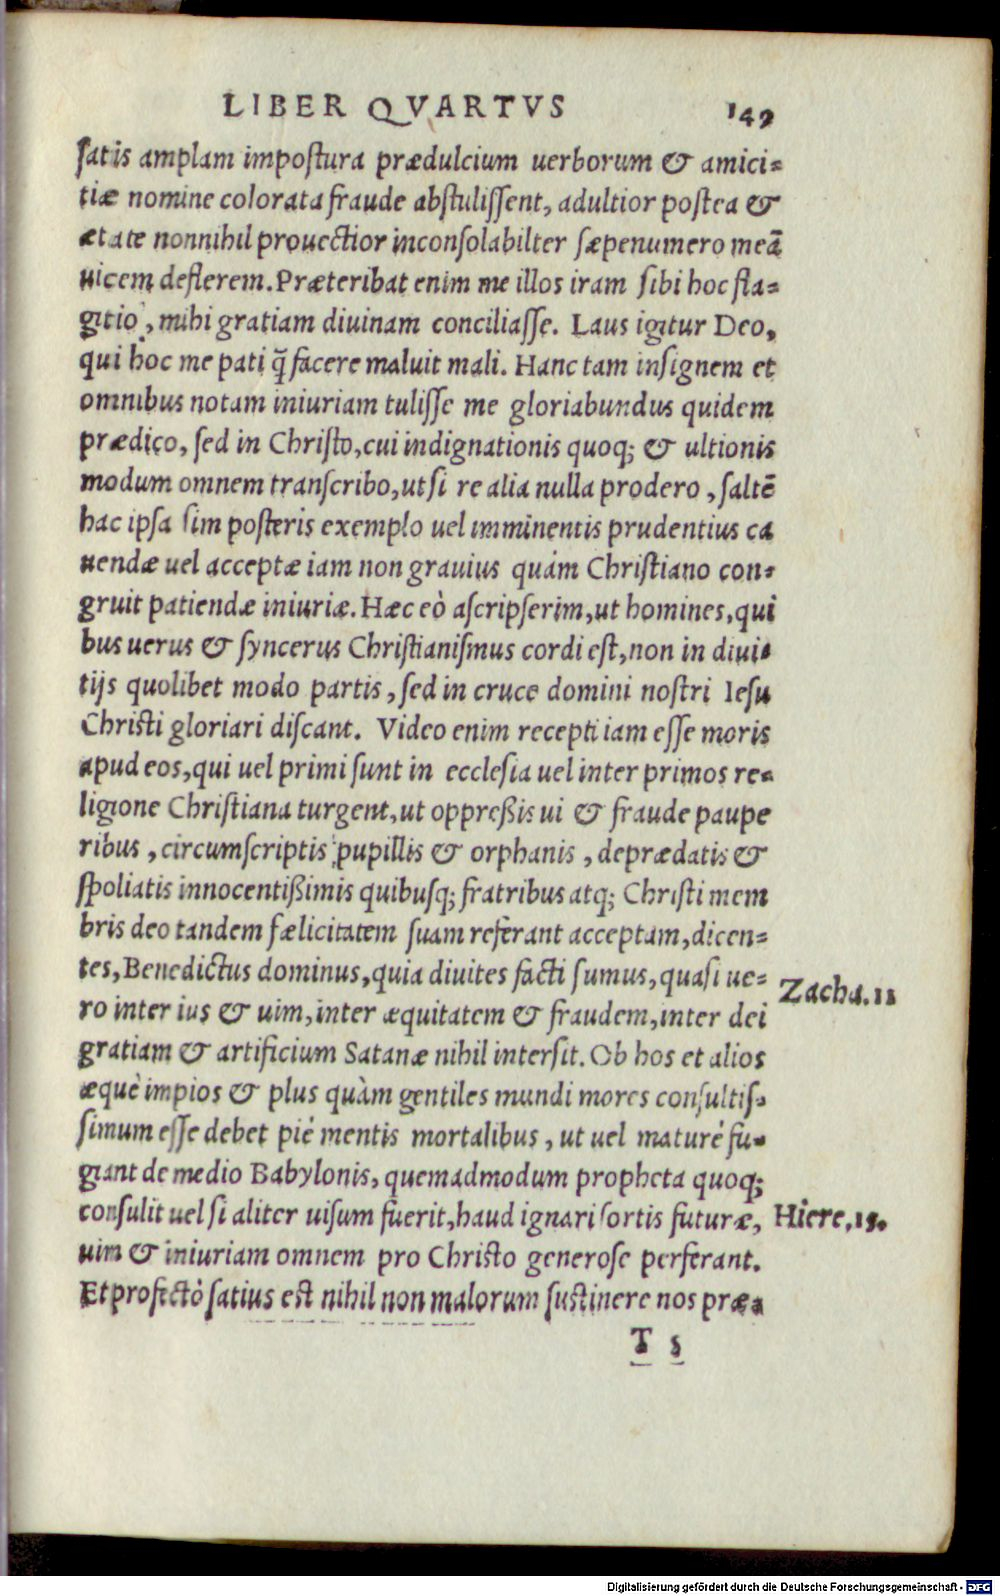 LIBER QVARTVS 149
satis amplam impostura prædulcium uerborum & amici=
tiæ nomine colorata fraude abstulissent, adultior postea &
ætate nonnihil prouectior inconsolabilter sæpenumero meã
uicem deflerem. Præteribat enim me illos iram sibi hoc fla=
gitio, mihi gratiam diuinam conciliasse. Laus igitur Deo,
qui hoc me pati q̃ facere maluit mali. Hanc tam insignem et
omnibus notam iniuriam tulisse me gloriabundus quidem
prædico, sed in Christo, cui indignationis quoq; & ultionis
modum omnem transcribo, ut si re alia nulla prodero, saltẽ
hac ipsa sim posteris exemplo uel imminentis prudentius ca
uendæ uel acceptæ iam non grauius quàm Christiano con=
gruit patiendæ iniuriæ. Hæc eò ascripserim, ut homines, qui
bus uerus & syncerus Christianismus cordi est, non in diui=
tijs quolibet modo partis, sed in cruce domini nostri Iesu
Christi gloriari discant. Video enim recepti iam esse moris
apud eos, qui uel primi sunt in ecclesia uel inter primos re=
ligione Christiana turgent, ut oppreßis ui & fraude paupe
ribus, circumscriptis pupillis & orphanis, deprædatis &
spoliatis innocentißimis quibusq; fratribus atq; Christi mem
bris deo tandem fælicitatem suam referant acceptam, dicen=
tes, Benedictus dominus, quia diuites facti sumus, quasi ue=
Zacha. 11
ro inter ius & uim, inter æquitatem & fraudem, inter dei
gratiam & artificium Satanæ nihil intersit. Ob hos et alios
æquè impios & plus quàm gentiles mundi mores consultis=
simum esse debet piè mentis mortalibus, ut uel maturè fu=
giant de medio Babylonis, quemadmodum propheta quoq;
consulit uel si aliter uisum fuerit, haud ignari sortis futuræ,
Hiere, 15.
uim & iniuriam omnem pro Christo generose perferant.
Et profectò satius est nihil non malorum sustinere nos præ=
T 5
Digitalisierung gefördert durch die Deutsche Forschungsgemeinschaft - DFG